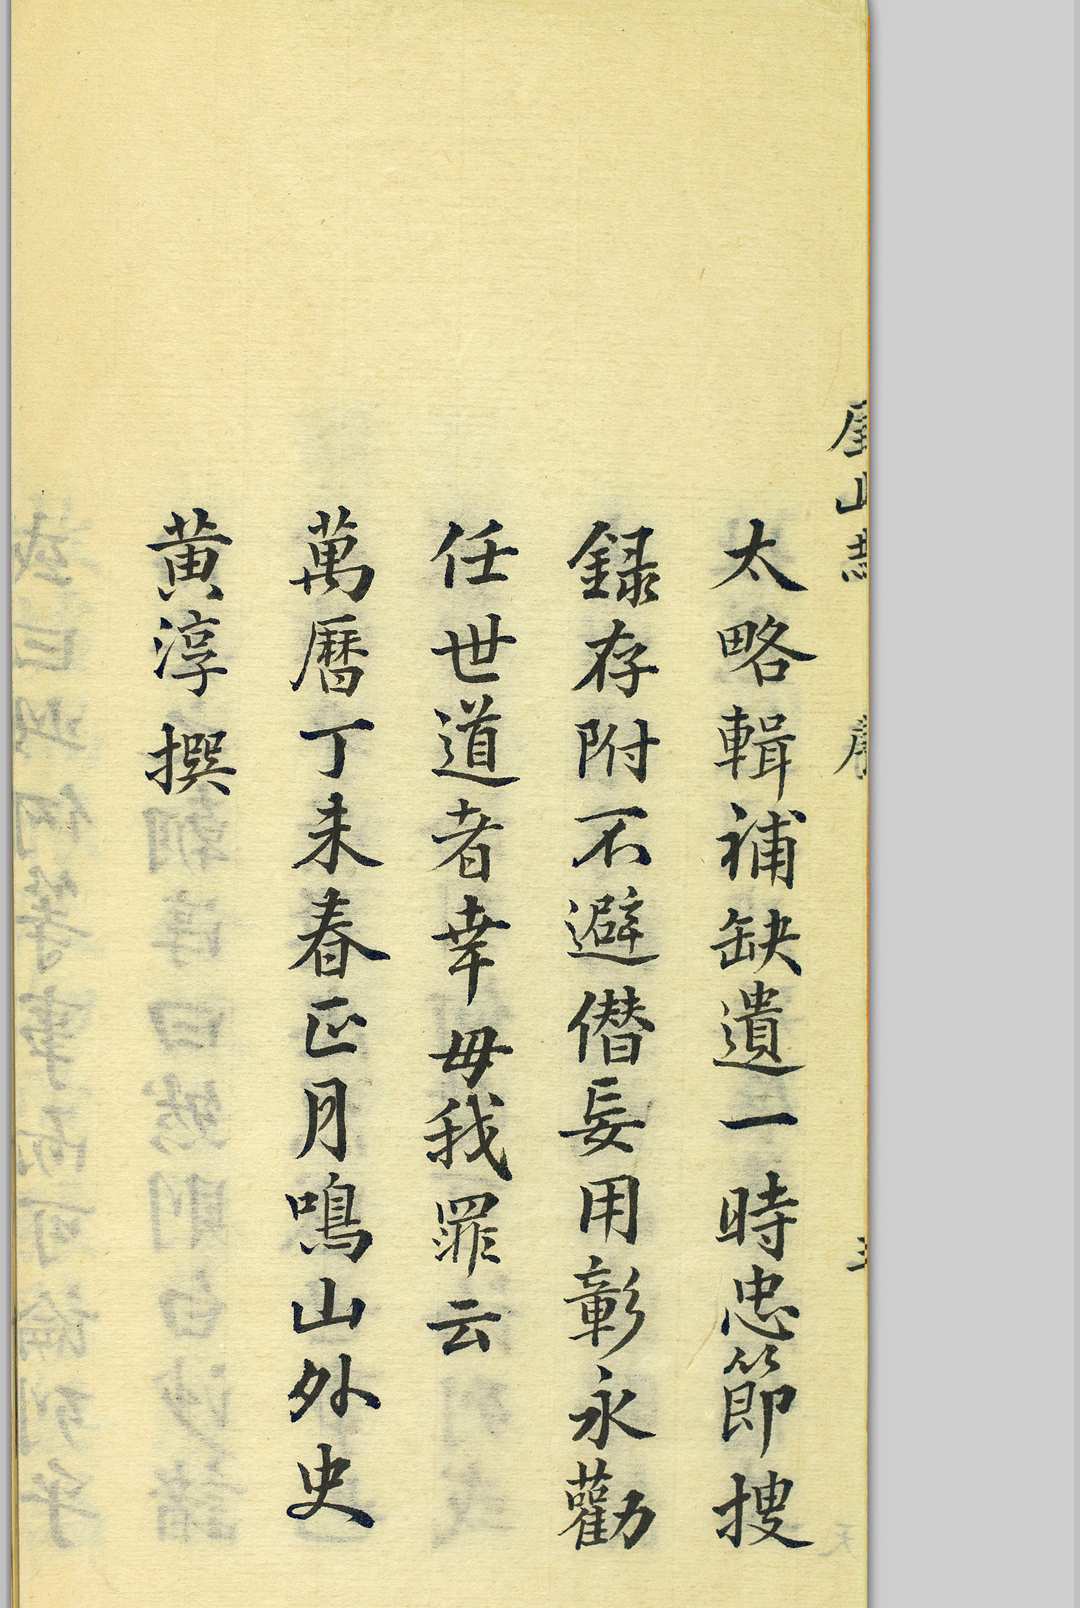 厓山
太略輯補缺遺一時忠節搜
録存附不避僣妄用彰永勸
任世道者幸毋我罪云
萬曆丁未春正月鳴山外史
黄淳撰